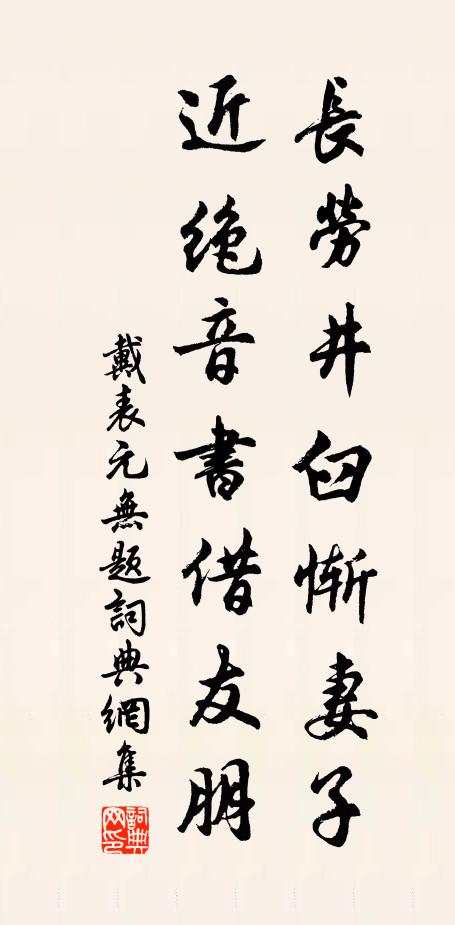 長勞井臼慚妻子
近絶音書借友朋
戴表元無題詞典網集
詞典網印